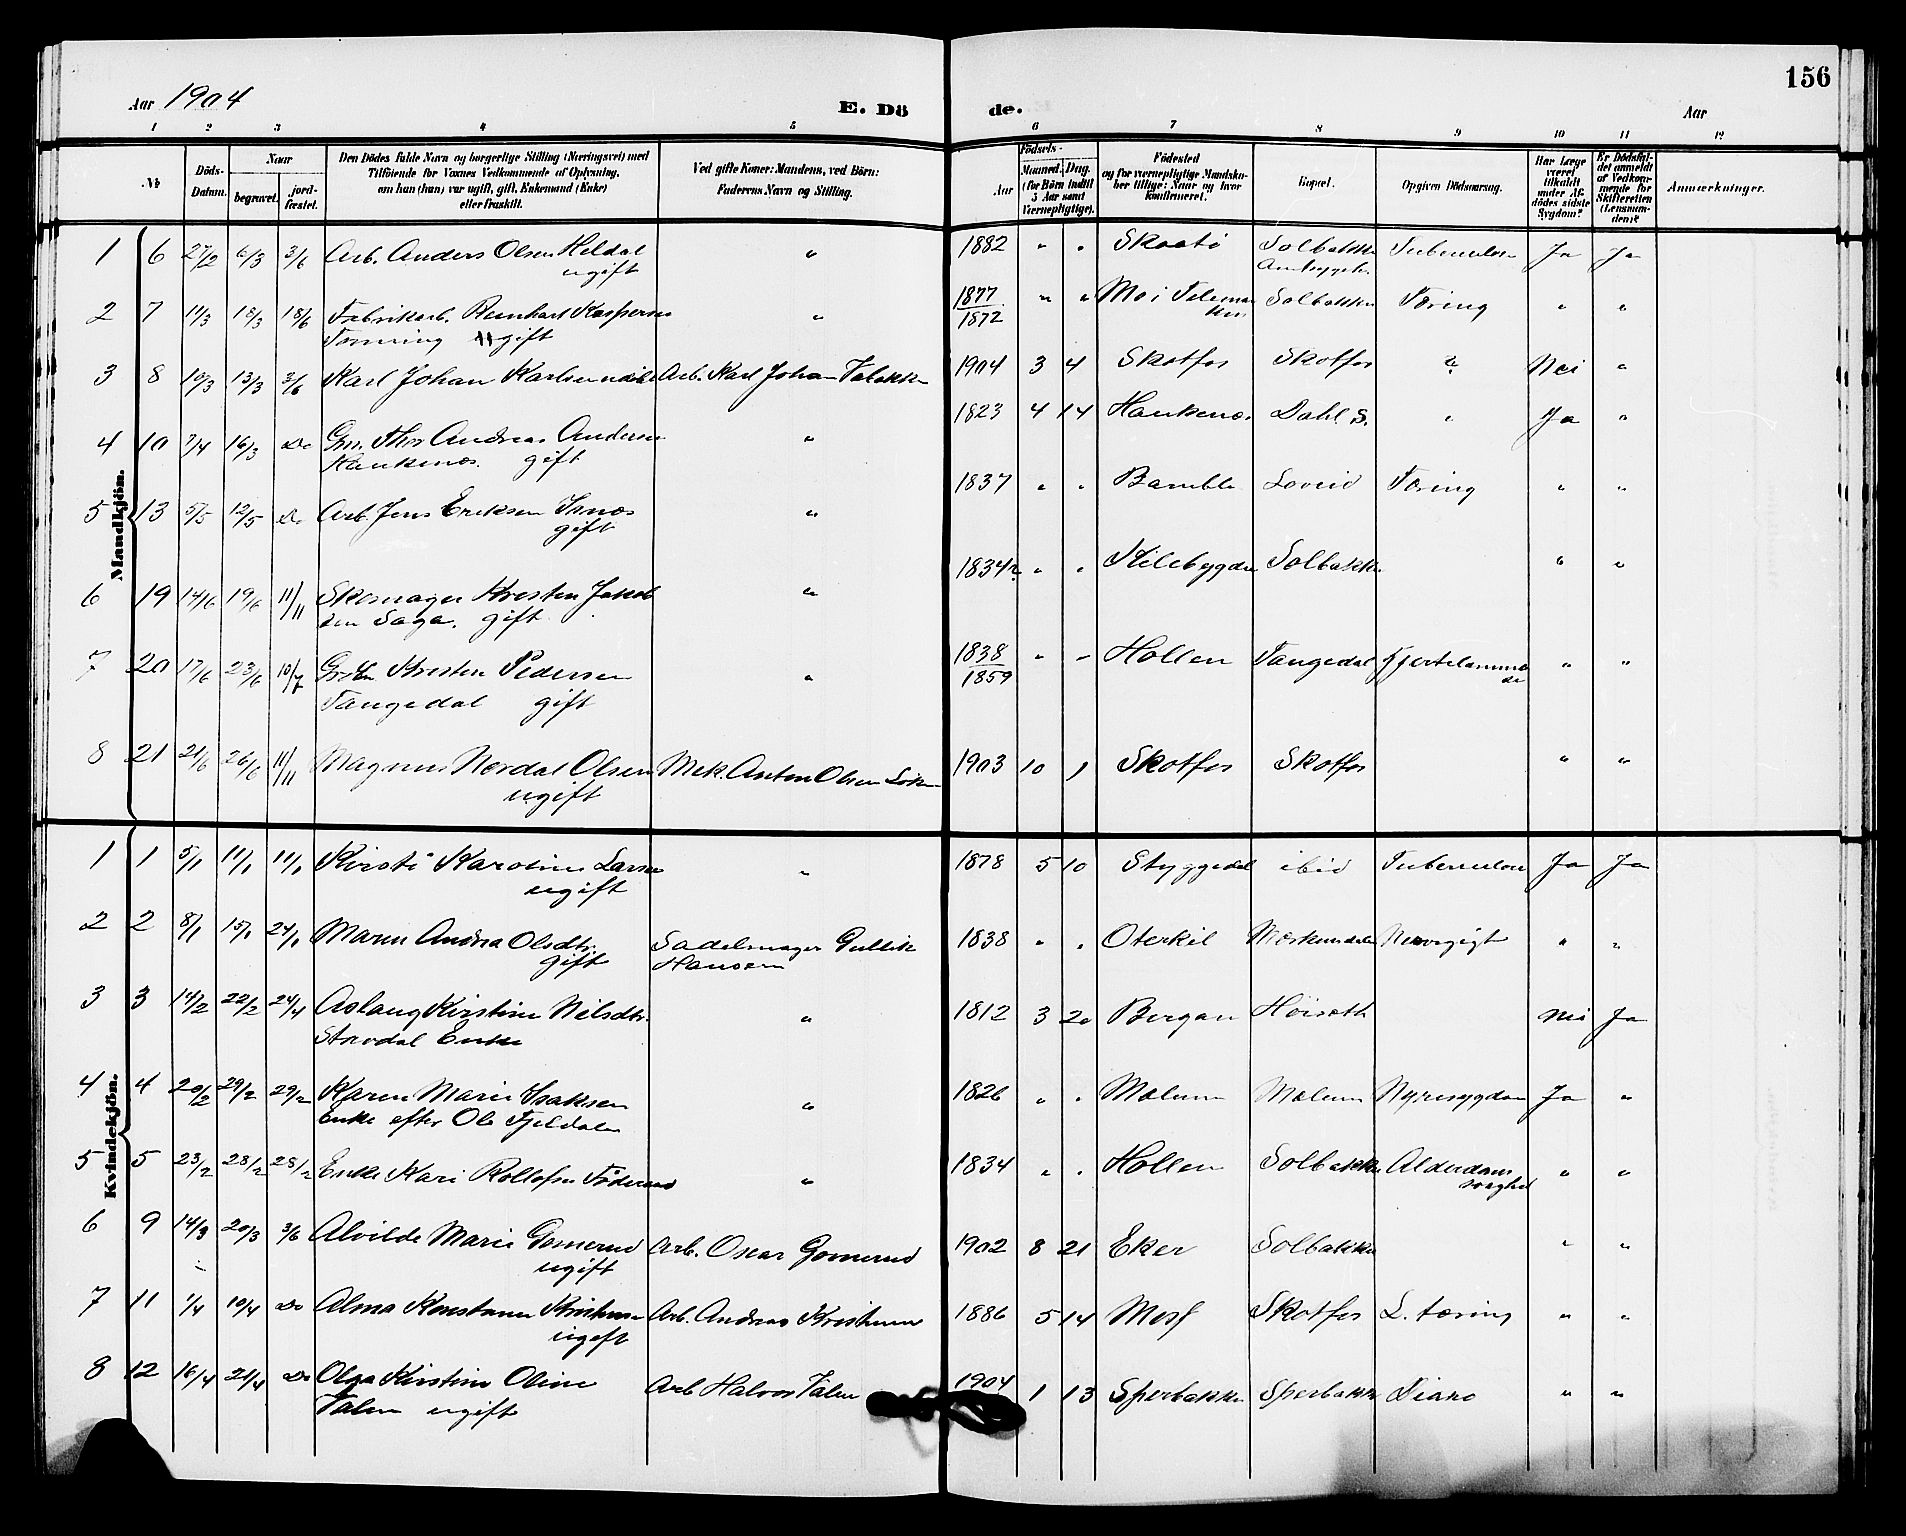 156
Aar 1904 E. Dö de. Aar
1 2 3 4 5 6 7 8 9 10 11 12
No
Döds-Datum.
Naar
begravet.
jord-fæstet.
Den Dödes fulde Navn og borgerlige Stilling (Næringsvei) med
Tilföiende for Voxnes Vedkommende af Oplysning,
om han (hun) var ugift, gift, Enkemand (Enke)
eller fraskilt.
Ved gifte Koner: Mandens, ved Börn:
Faderens Navn og Stilling.
Födsels-
Aar
Maaned. Dag.
(for Börn indtil
5 Aar samt
Værnepligtige).
Födested
og for værnepligtige Mandska-
ber tillige: Naar og hvor
konfirmeret.
Bopæl.
Opgiven Dödsaarsag.
Har Læge
været
tilkaldt
under Af-
dödes sidste
Sygdom?
Er Dödsfal-
det anmeldt
af Vedkom-
mende for
Skifteretten
(Lensman-
den)?
Anmærkninger.
Mandkjön.
1 6 27/2 6/3 3/6 Arb. Anders Olsen Heldal " 1882 " " Skaatö Solbakken Tuberculose Ja Ja
ugift
2 7 11/3 18/3 18/6 Fabrikarb. Reinhart Kaspersen " 1877 " " Mo i Telemar Solbakken Tæring " "
1872 ken
gift
3 8 10/3 13/3 3/6 Karl Johan Karlsen Arb. Karl Johan 1904 3 4 Skotfos Skotfos Nei "
4 10 7/4 16/3 Do Andreas Andersen " 1823 4 14 Haukenes Dahl S. " Ja "
Haukenes. gift
5 13 5/5 12/5 Do Arb. Jens Eriksen " 1837 " " Bamble Loveid Tæring " "
gift
6 19 14/6 19/6 11/11 Skomager Kresten Jakob " 1834 " " Kilebygden Solbakken " "
sen Saga. gift
7 20 17/6 23/6 10/7 Kresten Pedersen " 1838 " " Hollen Tangedal Hjertelamme " "
1859 lse
Tangedal gift
8 21 21/6 26/6 11/11 Magnus Nordal Olsen Mek. Anton Olsen 1903 10 1 Skotfos Skotfos " "
ugift
Kvindekjön.
1 1 5/1 11/1 11/1 Kirsti Karoline Larsen " 1878 5 10 Styggedal ibid Tuberculose Ja Ja
ugift
2 2 8/1 15/1 24/1 Maren Andrea Olsdtr. Sadelmager Gullik 1838 " " Oterkil Nervegigt " "
gift Hansen
3 3 14/2 22/2 24/4 Aslaug Kirstine Nilsdtr. " 1812 3 20 Bergan Höiseth Nei Ja
Stordal Enke
4 4 20/2 29/2 29/2 Karen Marie Isaksen " 1826 " " Mælum Mælum Nyresygdom Ja "
Enke efter Ole Fjeldalen
5 5 23/2 28/2 28/2 Enke Kari Rollefsen " 1834 " " Hollen Solbakken Alderdoms " "
svaghed
6 9 14/3 20/3 3/6 Alvilde Marie Gomerud Arb. Oscar Gomerud 1902 8 21 Eker Solbakken " "
ugift
7 11 1/4 10/4 Do Alma Konstanse Kristensen Arb. Andreas Kristensen 1886 5 14 Moss Skotfos L. tæring " "
ugift
8 12 16/4 24/4 Do Olga Kirstine Oline Arb Halvor Talen 1904 1 13 Sperbakken Sperbakken Diare " "
Talen ugift